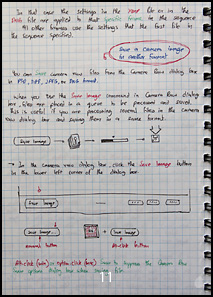 In that case the settings in the XMP file or in the
DNG file are applied to that specific format in the sequence
All other formats use the settings that the first file in
the sequence specifies).
Save a Camera Image
in another format
You can save camera raw files from the Camera Raw dialog box
in PSD, TIFF, JPEG, or DNG format
When you use the Save Image command in Camera Raw dialog
box, files are placed in a queue to be processed and saved.
This is useful if you are processing several files in the camera
raw dialog box and saving them in a same format.
Save Image
→ In the Camera raw dialog box, click the Save Image button
in the lower left corner of the dialog box
Save Image
Save Image...
+
Save Image
normal button
Alt-click button
Alt-click (win) or option-click (Mac) Save to suppress the Camera Raw
Save options dialog box when saving a file.
11